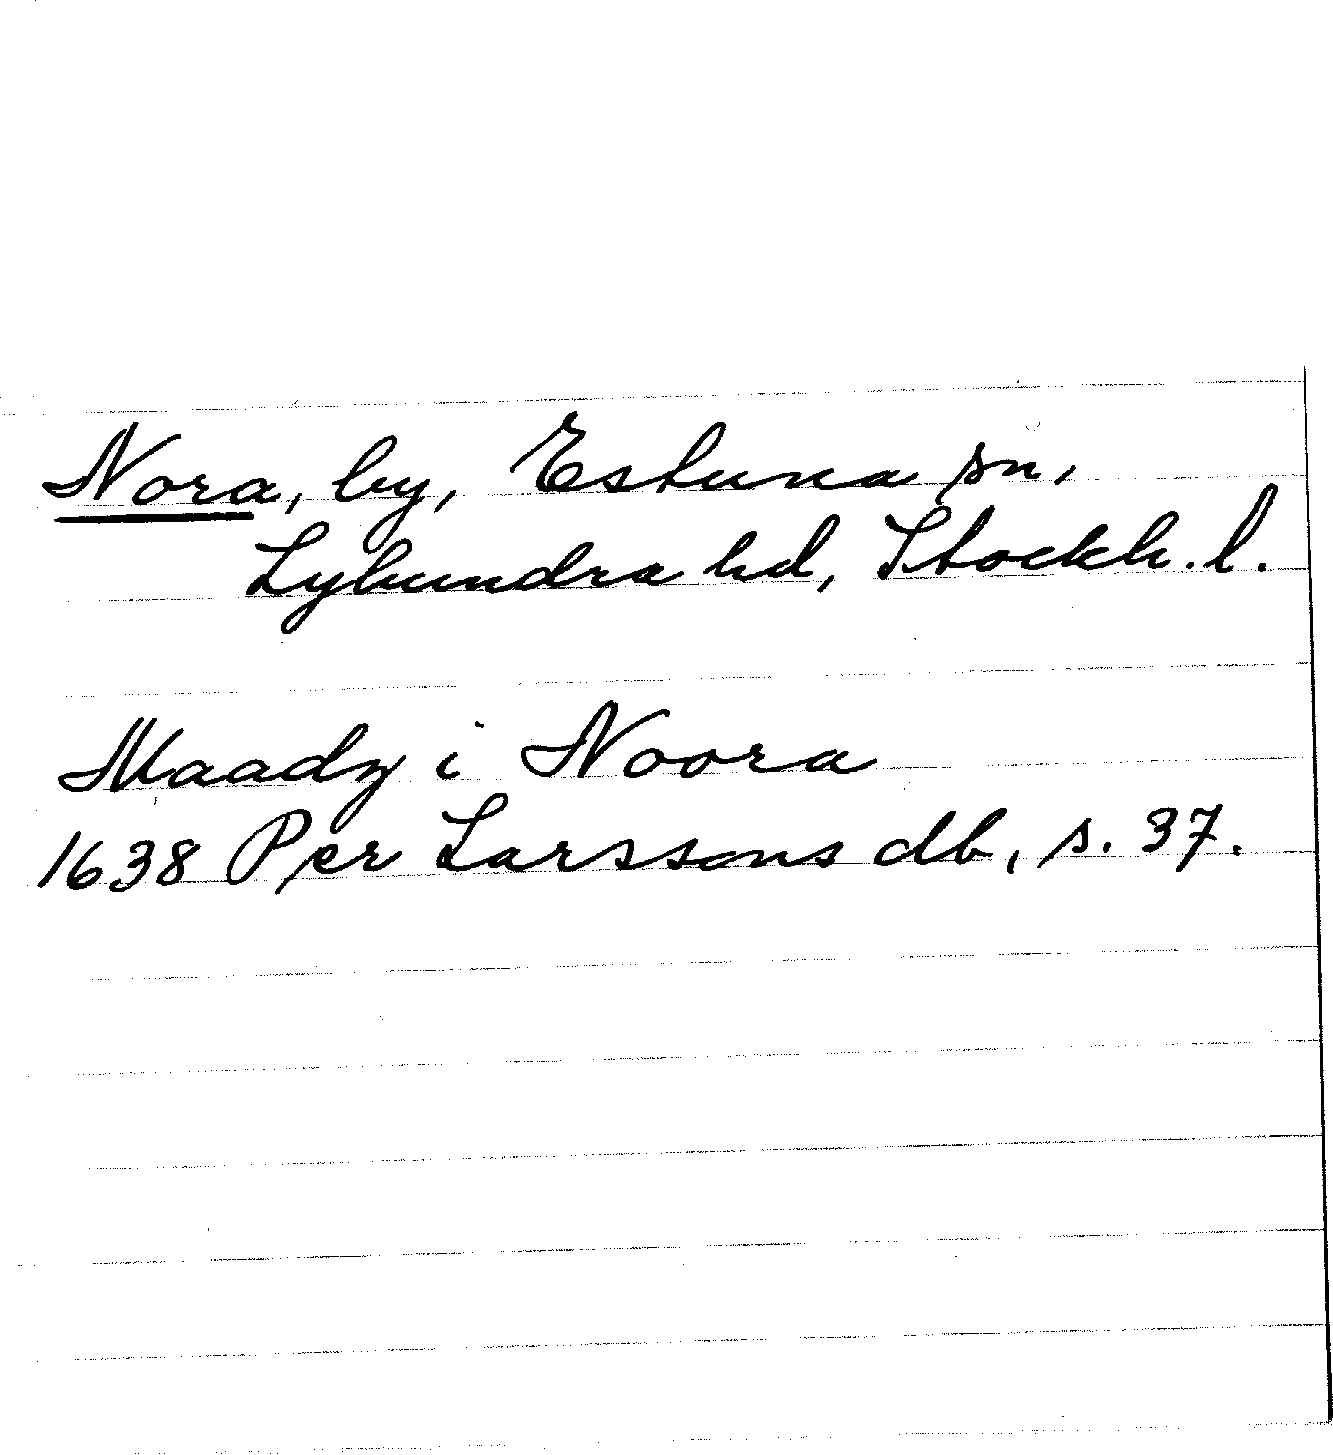 Nora, by, Estuna sn,
Lyhundra hd, Stockh. l.
Maadz i Noora
1638 Per Larssons db, s. 37.